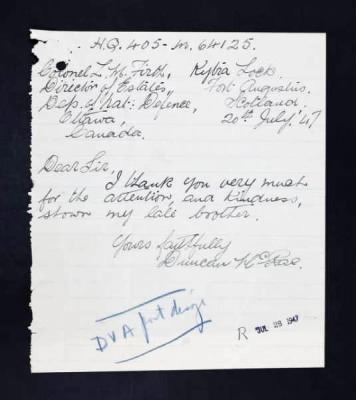 H.Q. 405-M. 64125.
Colonel L. M. Firth, Kytra Lock
Director of Estates, Fort Augustus
Dep. of Nat: Defence, Scotland.
Ottawa, 20th July '47
Canada.
Dear Sir,
I thank you very much
for the attention, and kindness,
shown my late brother.
Yours faithfully
Duncan McRae.
DVA
R JUL 28 1947